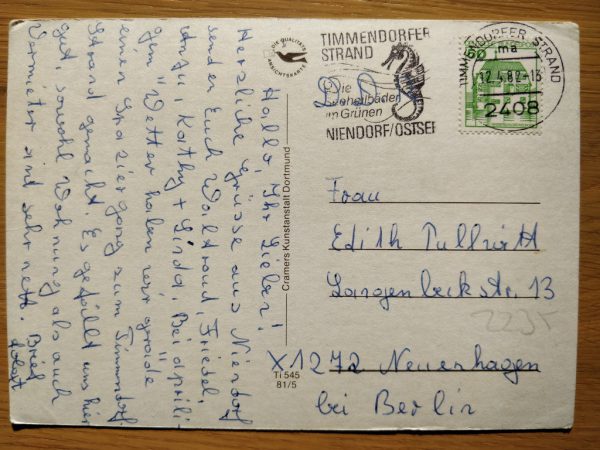 Hallo, Ihr Lieben!
Herzliche Grüsse aus Niendorf
senden Euch Waltraud, Friedel,
Kathy + Linda. Bei aprili-
gem Wetter haben wir gerade
einen Spaziergang zum Timmendorf.
Strand gemacht. Es gefällt uns hier
gut sowohl Wohnung als auch
Vermieter sind sehr nett. Brief
folgt
DIE QUALITÄTS
ANSICHTSKARTE
Cramers Kunstanstalt Dortmund
Ti 545
81/5
TIMMENDORFER
STRAND
Die
im Grünen
NIENDORF/OSTSEE
D.D.
TIMMENDORFER STRAND
ma
12.4.82-15
2408
50
Frau
Edith
Langenbeckstr. 13
2235
X1272 Neuenhagen
bei Berlin